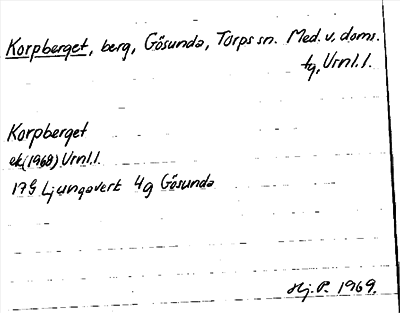 Korpberget, berg, Gösunda, Torps sn. Med. v. doms.
tg, Vrnl. l.
Korpberget
ek (1968) Vrnl. l.
17 G Ljungaverk 4g Gösunda
Hj. P. 1969.